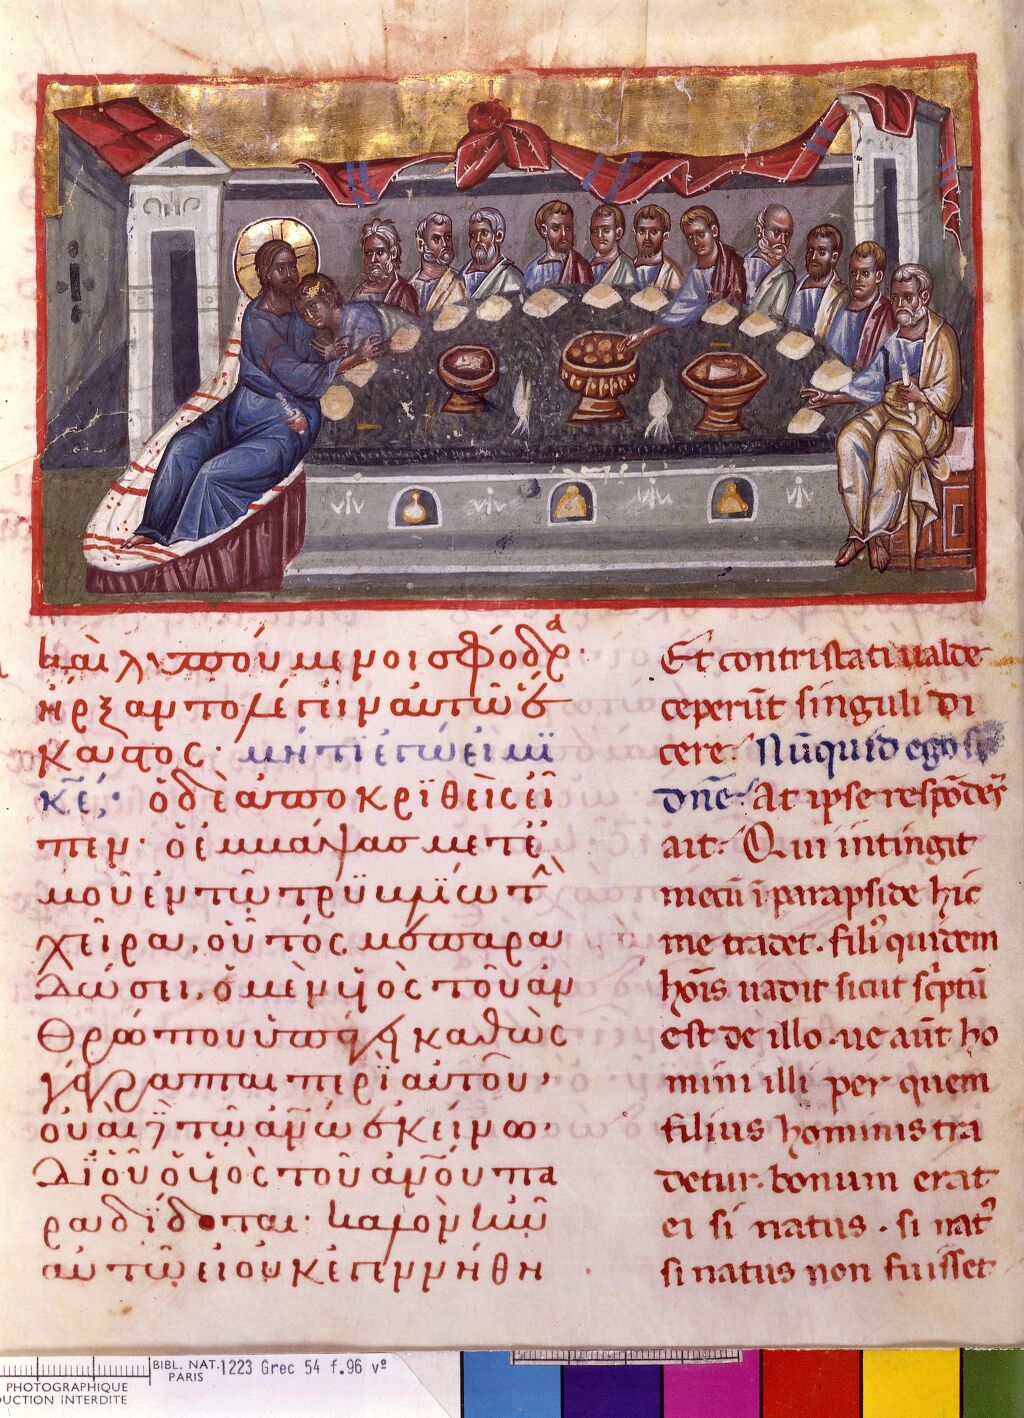 καὶ λυπούμενοι σφόδρα·
ἤρξαντο λέγειν αὐτῶ εἷς
καστος· μήτι ἐγώ εἰμϊ
κε̅; ὁ δὲ ἀποκρϊθεὶς εἶ
πεν· ὁ ἐμβάψας μετ' ἐ
μοῦ ἐν τῶ τρϋβλϊω τὴν
χεῖρα, οὗτός με παρα
δώσει, ὁ μὲν υἱὸς τοῦ ἀν
θρώπου ὑπάγει καθὼς
γέγραπται περϊ αὐτοῦ,
οὐαὶ δὲ τῶ ανω̅ ἐκείνω·
δι' οὗ ὁ υἱὸς τοῦ ανου̅ πα
ραδίδοται· καλὸν ἦν
αὐτῶ εἰ οὐκ ἐγεννήθη
Et contristati ualde
ceperūt singuli di
cere· Nūquid ego sū
dn̅e· At ipse respōdēs
ait· Qui intingit
mecū ī parapside hic
me tradet· fili᾿ quidem
hoīs uadit sicut sc̅ptū
est de illo· ue aūt ho
mini illi per quem
filius hominis tra
detur· bonum erat
ei si natus· si nat᾿
si natus non fuisset
BIBL. NAT. 1223 Grec 54 f.96 vº
PARIS
PHOTOGRAPHIQUE
DUCTION INTERDITE